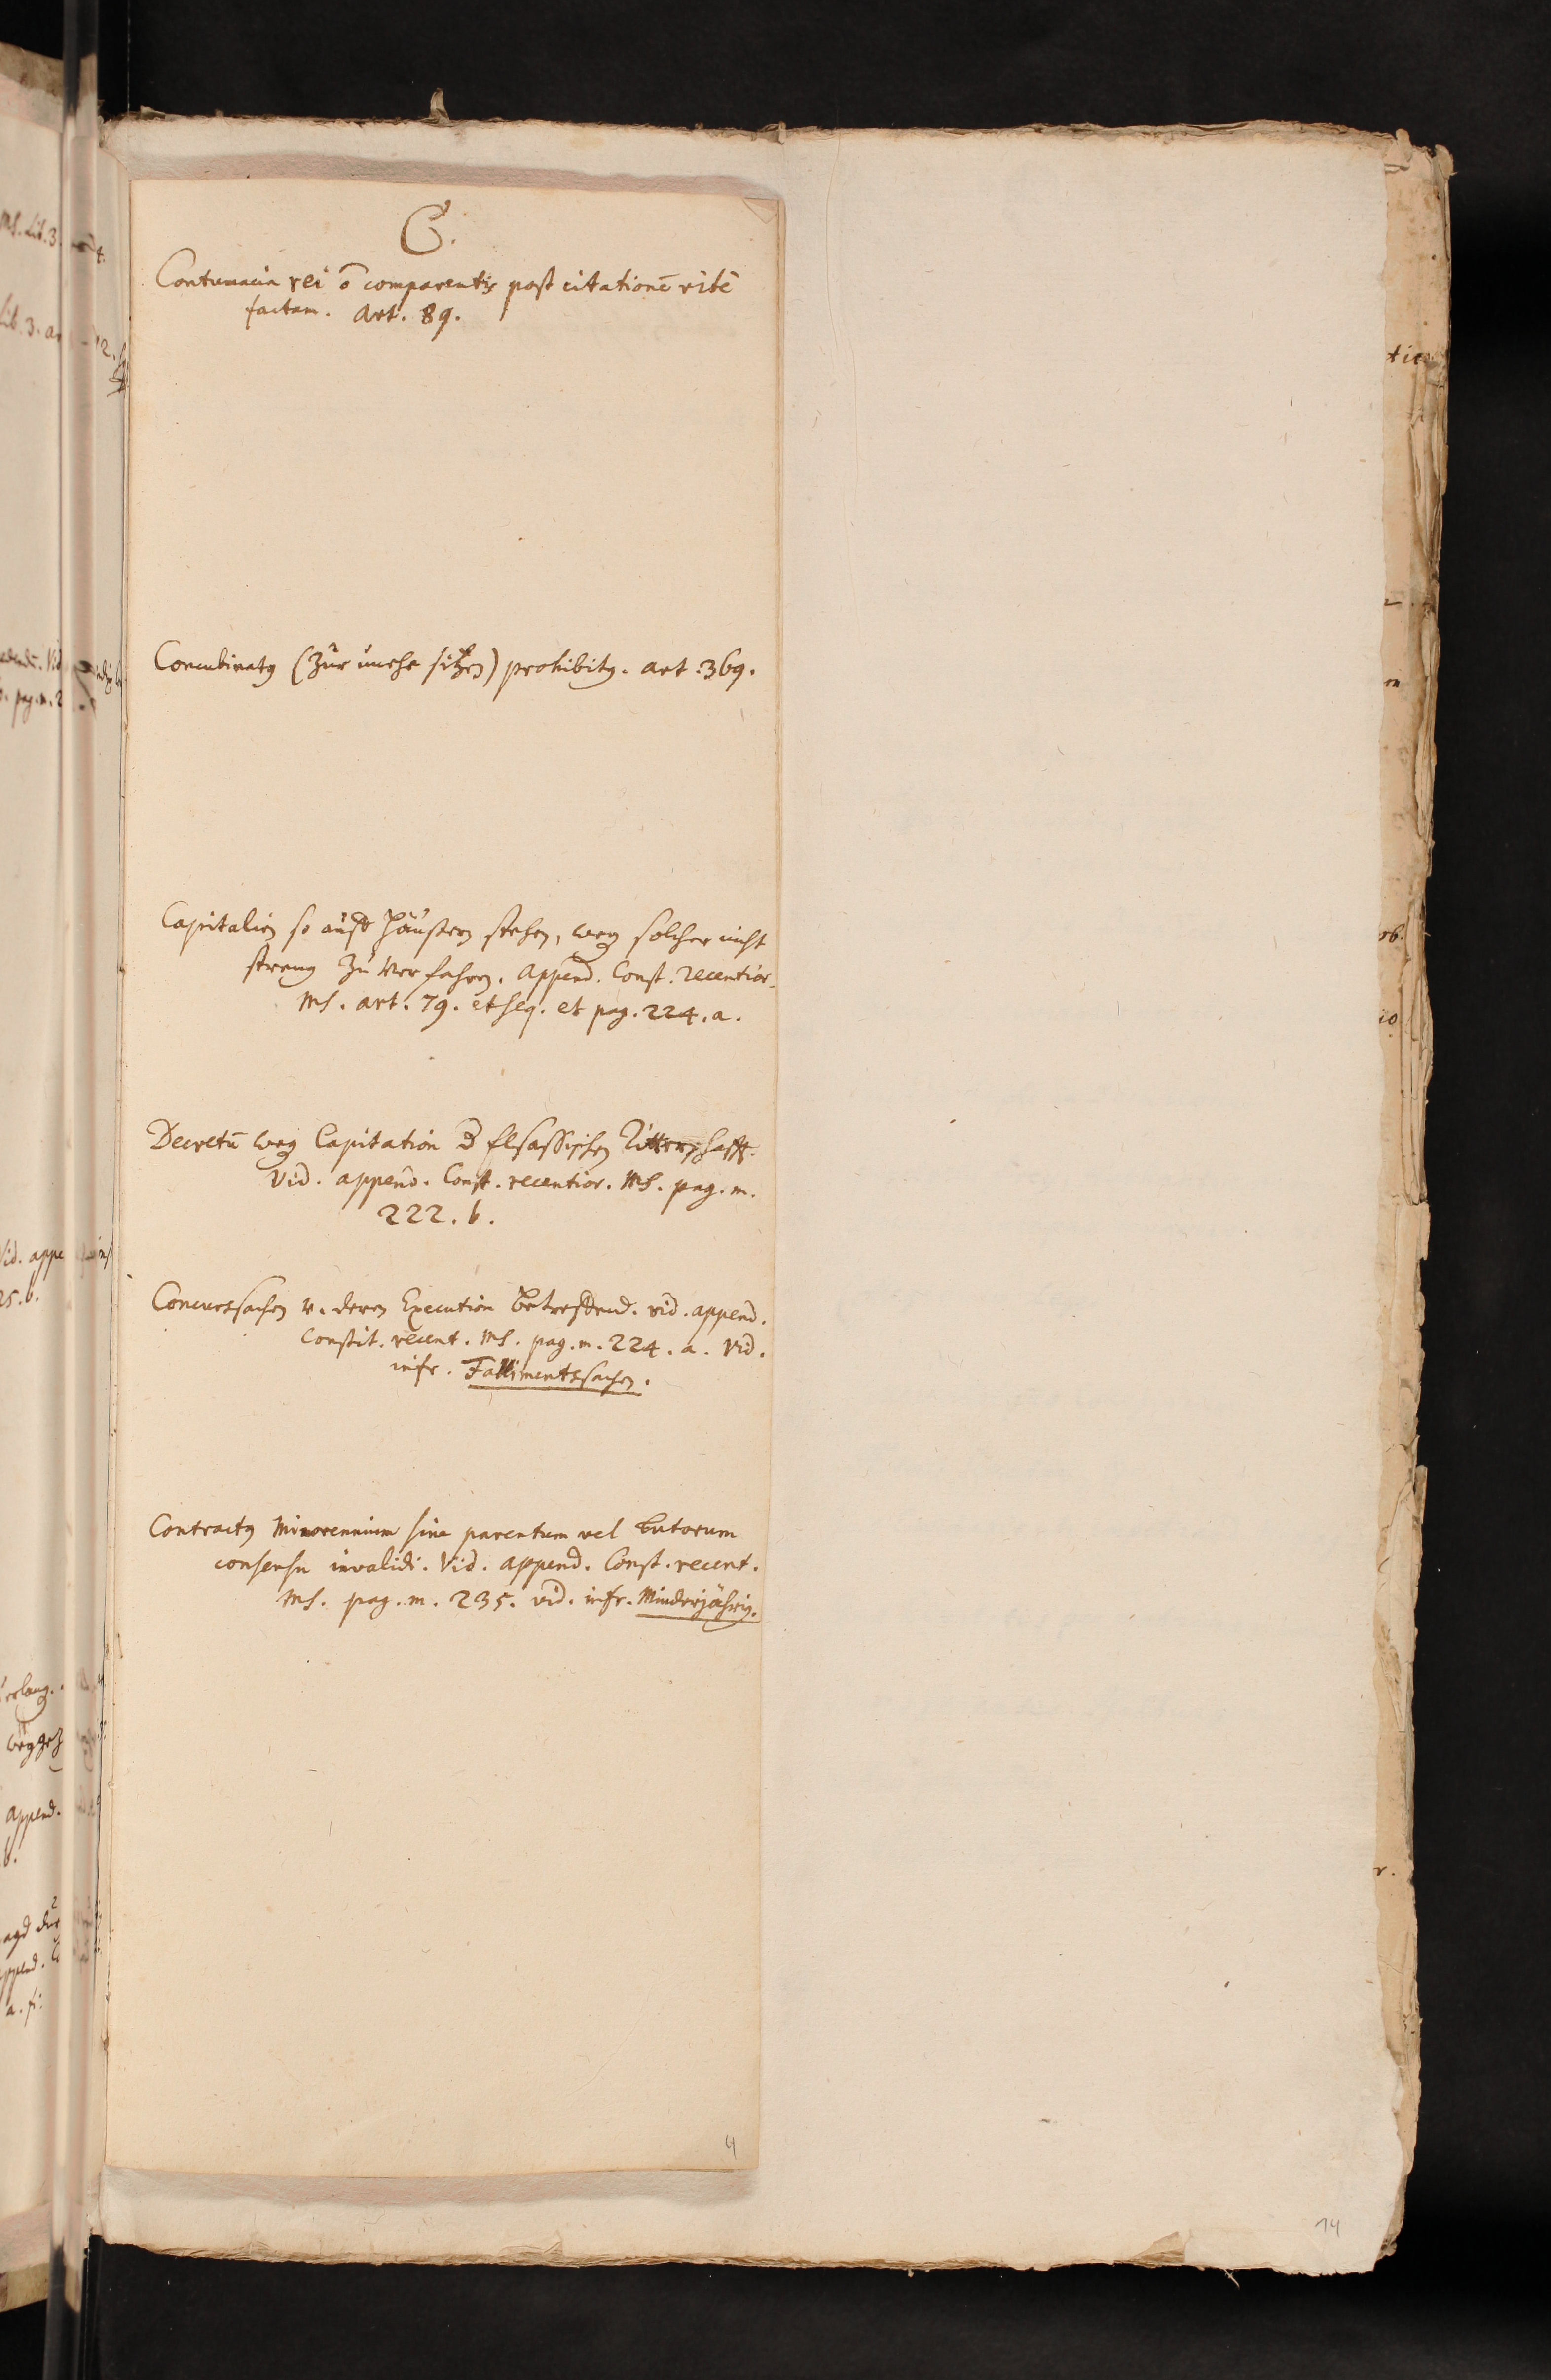 C.
Contumacia rei ō comparentis post citationē ritè
factam. Art. 89.
Concubinatꝰ (zur unehe sitzen) prohibitꝰ. art. 369.
Capitalien so auff Häußern stehen, weg solcher nicht
streng zu verfahren. Append. Const. recentior.
Ms. art. 79. et seq. et pag. 224. a.
Decretū weg Capitation d Elsassischen Ritterschafft.
Vid. append. Const. recentior. Ms. pag. m.
222. b.
Concurssachen u. deren Execution betreffend. vid. append.
Constit. recent. Ms. pag. m. 224. a. Vid.
infr. Fallimentssachen.
Contractꝰ Minorennium sine parentum vel tutorum
consensu invalidi. Vid. append. Const. recent.
Ms. pag. m. 235. vid. infr. Minderjährig.
4
14